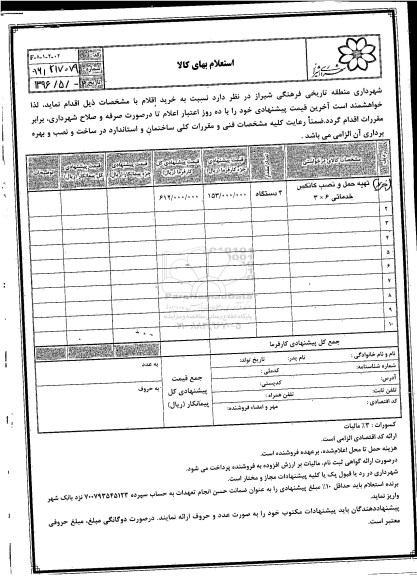 استعلام بهای کالا
۹۶/۲۱۷۰۷۹
۱۳۹۶/۵/
شهرداری منطقه تاریخی فرهنگی شیراز در نظر دارد نسبت به خرید اقلام با مشخصات ذیل اقدام نماید، لذا
خواهشمند است آخرین قیمت پیشنهادی خود را با ده روز اعتبار اعلام تا درصورت صرفه و صلاح شهرداری، برابر
مقررات اقدام گردد.ضمناً رعایت کلیه مشخصات فنی و مقررات کلی ساختمان و استاندارد در ساخت و نصب و بهره
برداری آن الزامی می باشد .
تهیه حمل و نصب کانکس ۴ دستگاه ۱۵۳/۰۰۰/۰۰۰ ۶۱۲/۰۰۰/۰۰۰
خدماتی ۶ × ۳
۲
۳
۴
۵
۶
۷
۸
۹
۱۰
جمع کل پیشنهادی کارفرما
نام و نام خانوادگی : نام پدر: تاریخ تولد:
شماره شناسنامه: کدملی :
آدرس: کدپستی:
تلفن ثابت: تلفن همراه :
کد اقتصادی : مهر و امضاء فروشنده:
جمع قیمت
پیشنهادی کل
پیمانکار (ریال)
به عدد
به حروف
کسورات : ۳٪ مالیات
ارائه کد اقتصادی الزامی است.
هزینه حمل تا محل اعلام‌شده، برعهده فروشنده است.
درصورت ارائه گواهی ثبت نام، مالیات بر ارزش افزوده به فروشنده پرداخت می شود.
شهرداری در رد یا قبول یک یا کلیه پیشنهادات مجاز و مختار است.
برنده استعلام باید حداقل ۱۰٪ مبلغ پیشنهادی را به عنوان ضمانت حسن انجام تعهدات به حساب سپرده ۷۰۰۷۹۳۵۴۵۱۲۳ نزد بانک شهر
واریز نماید.
پیشنهاددهندگان باید پیشنهادات مکتوب خود را به صورت عدد و حروف ارائه نمایند. درصورت دوگانگی مبلغ، مبلغ حروفی
معتبر است.